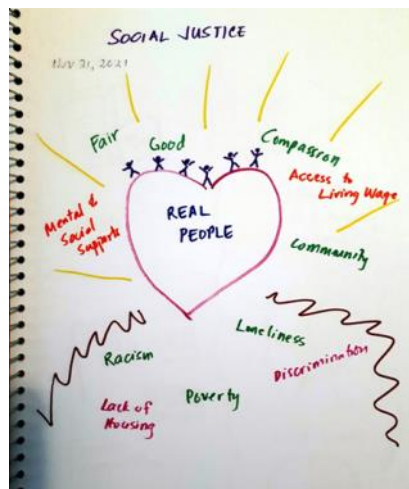 SOCIAL JUSTICE
Nov 21, 2021
Fair
Good
Compassion
Access to
Living Wage
Mental &
Social
Supports
REAL
PEOPLE
Community
Loneliness
Racism
Discrimination
Poverty
Lack of
Housing